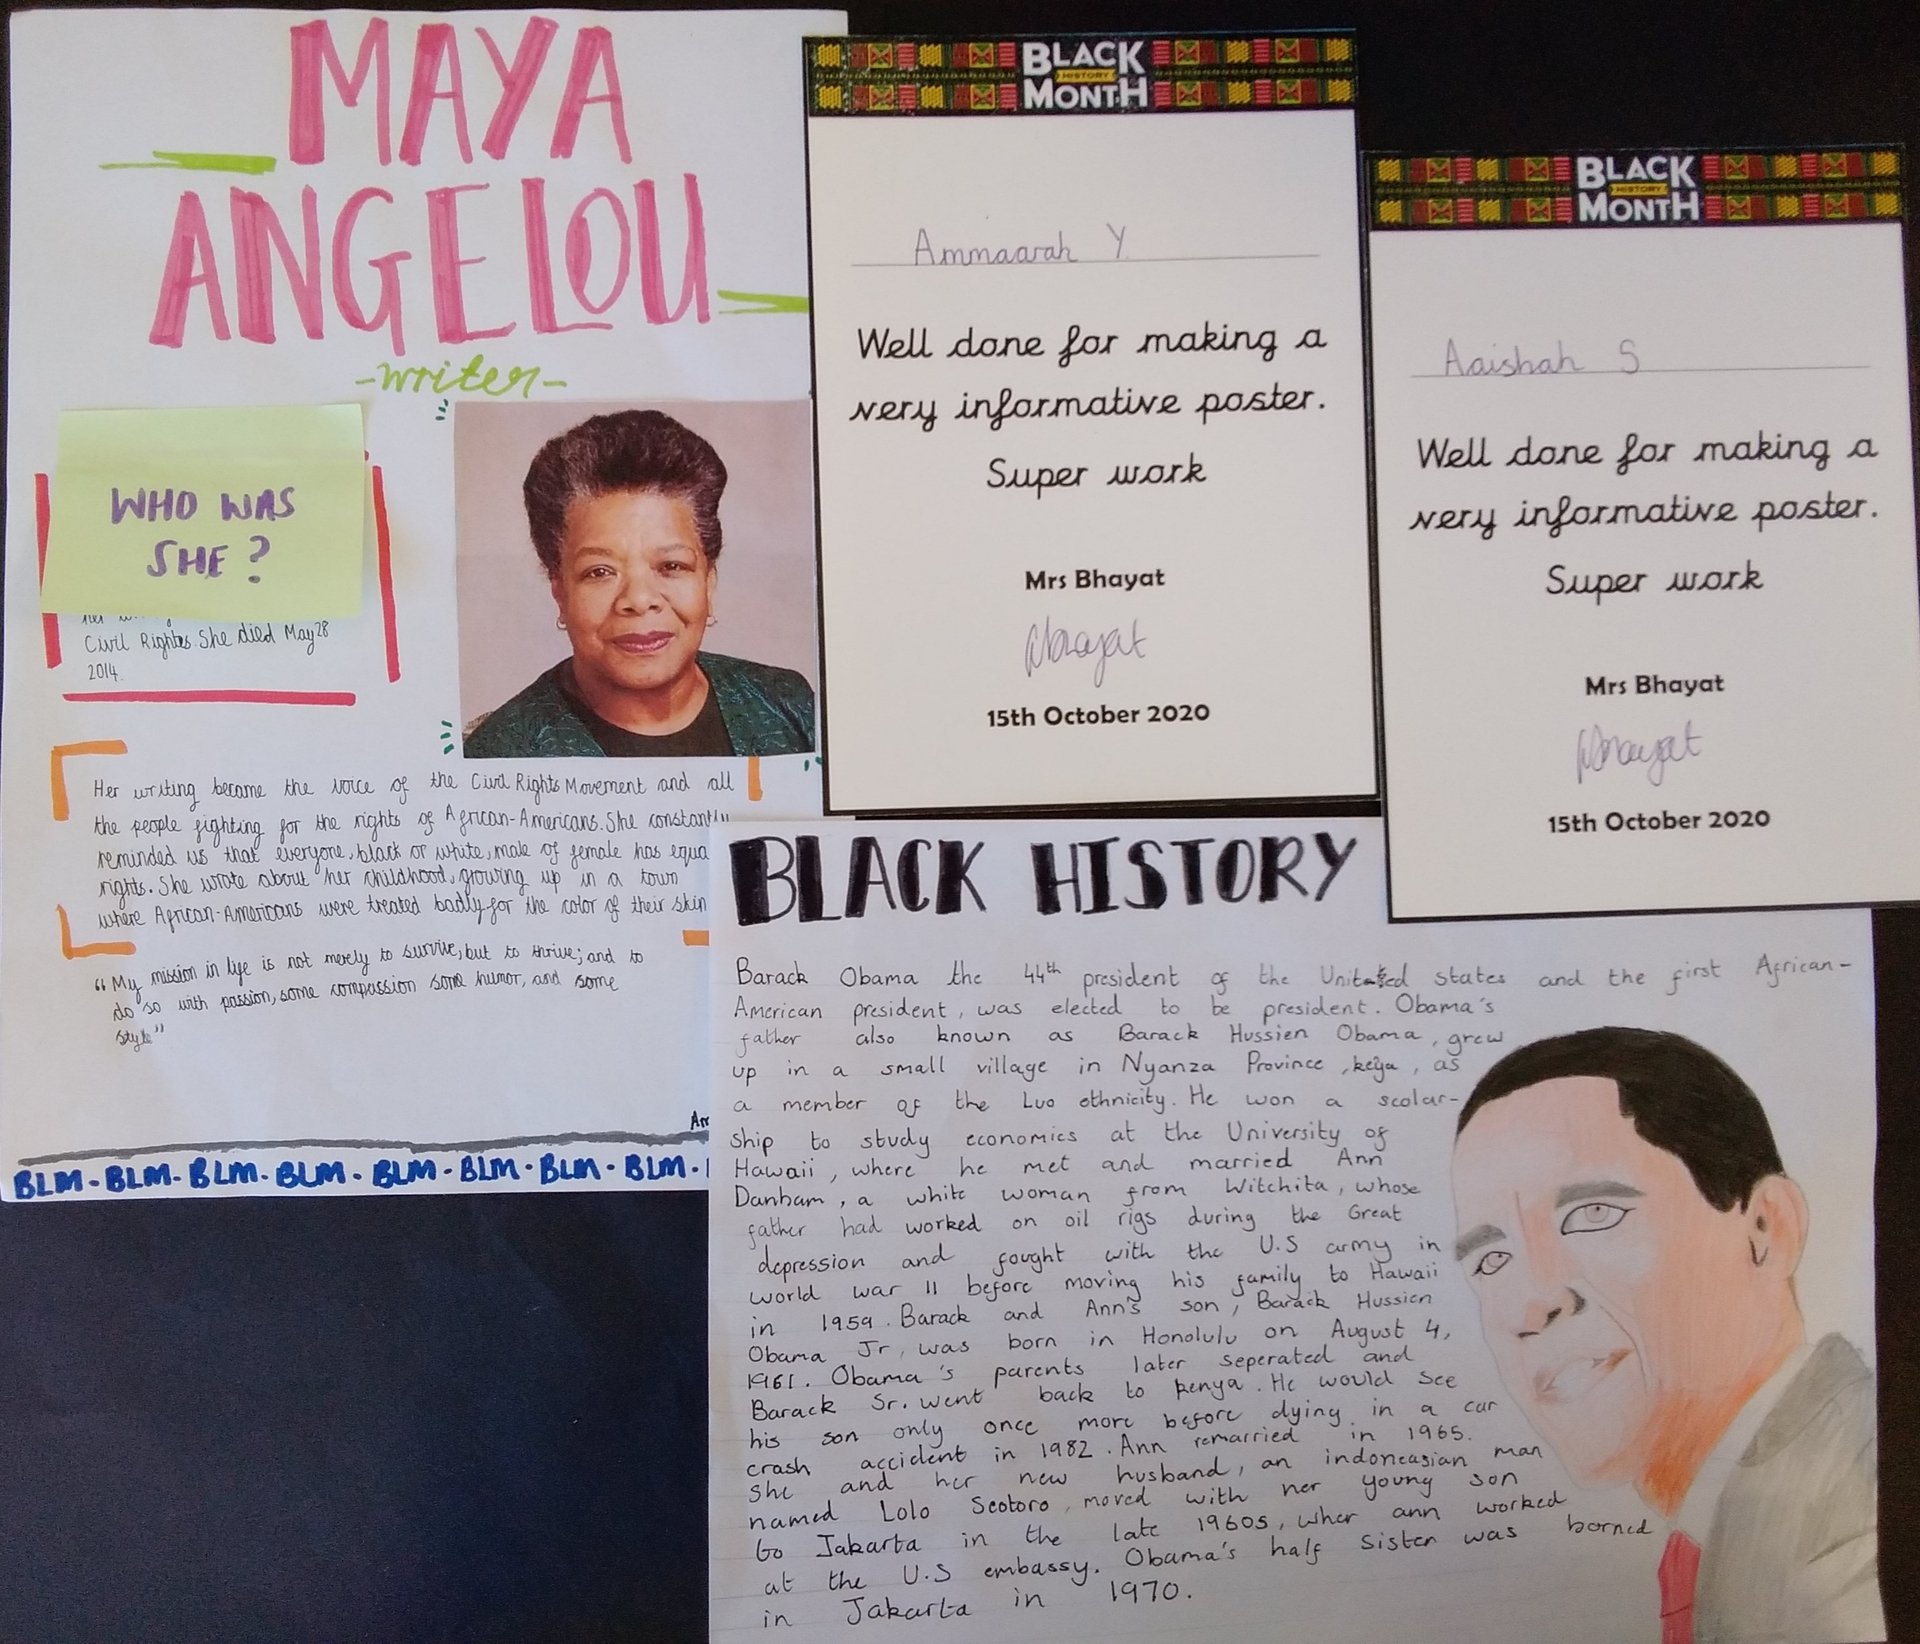 MAYA
ANGELOU
-writer-
WHO WAS
SHE?
Civil Rights. She died May 28
2014.
Her writing became the voice of the Civil Rights Movement and all
the people fighting for the rights of African-Americans. She constantly
reminded us that everyone, black or white, male of female has equa
rights. She wrote about her childhood, growing up in a town
where African-Americans were treated badly for the color of their skin
“My mission in life is not merely to survive, but to thrive; and to
do so with passion, some compassion some humor, and some
style”
BLM - BLM - BLM - BLM - BLM - BLM - BLM - BLM -
BLACK
HISTORY
MONTH
Ammaarah Y
Well done for making a
very informative poster.
Super work
Mrs Bhayat
Bhayat
15th October 2020
BLACK
HISTORY
MONTH
Aaishah S
Well done for making a
very informative poster.
Super work
Mrs Bhayat
Bhayat
15th October 2020
BLACK HISTORY
Barack Obama the 44th president of the United states and the first African-
American president, was elected to be president. Obama's
father also known as Barack Hussien Obama, grew
up in a small village in Nyanza Province, , as
a member of the Luo ethnicity. He won a scolar-
ship to study economics at the University of
Hawaii, where he met and married Ann
Danham, a white woman from Witchita, whose
father had worked on oil rigs during the Great
depression and fought with the U.S army in
world war II before moving his family to Hawaii
in 1959. Barack and Ann's son, Barack Hussien
Obama Jr, was born in Honolulu on August 4,
1961. Obama's parents later seperated and
Barack Sr. went back to kenya. He would see
his son only once more before dying in a car
crash accident in 1982. Ann remarried in 1965.
She and her new husband, an indoneasian man
named Lolo Seotoro, moved with her young son
to Jakarta in the late 1960s, wher ann worked
at the U.S embassy. Obama's half sister was borned
in Jakarta in 1970.